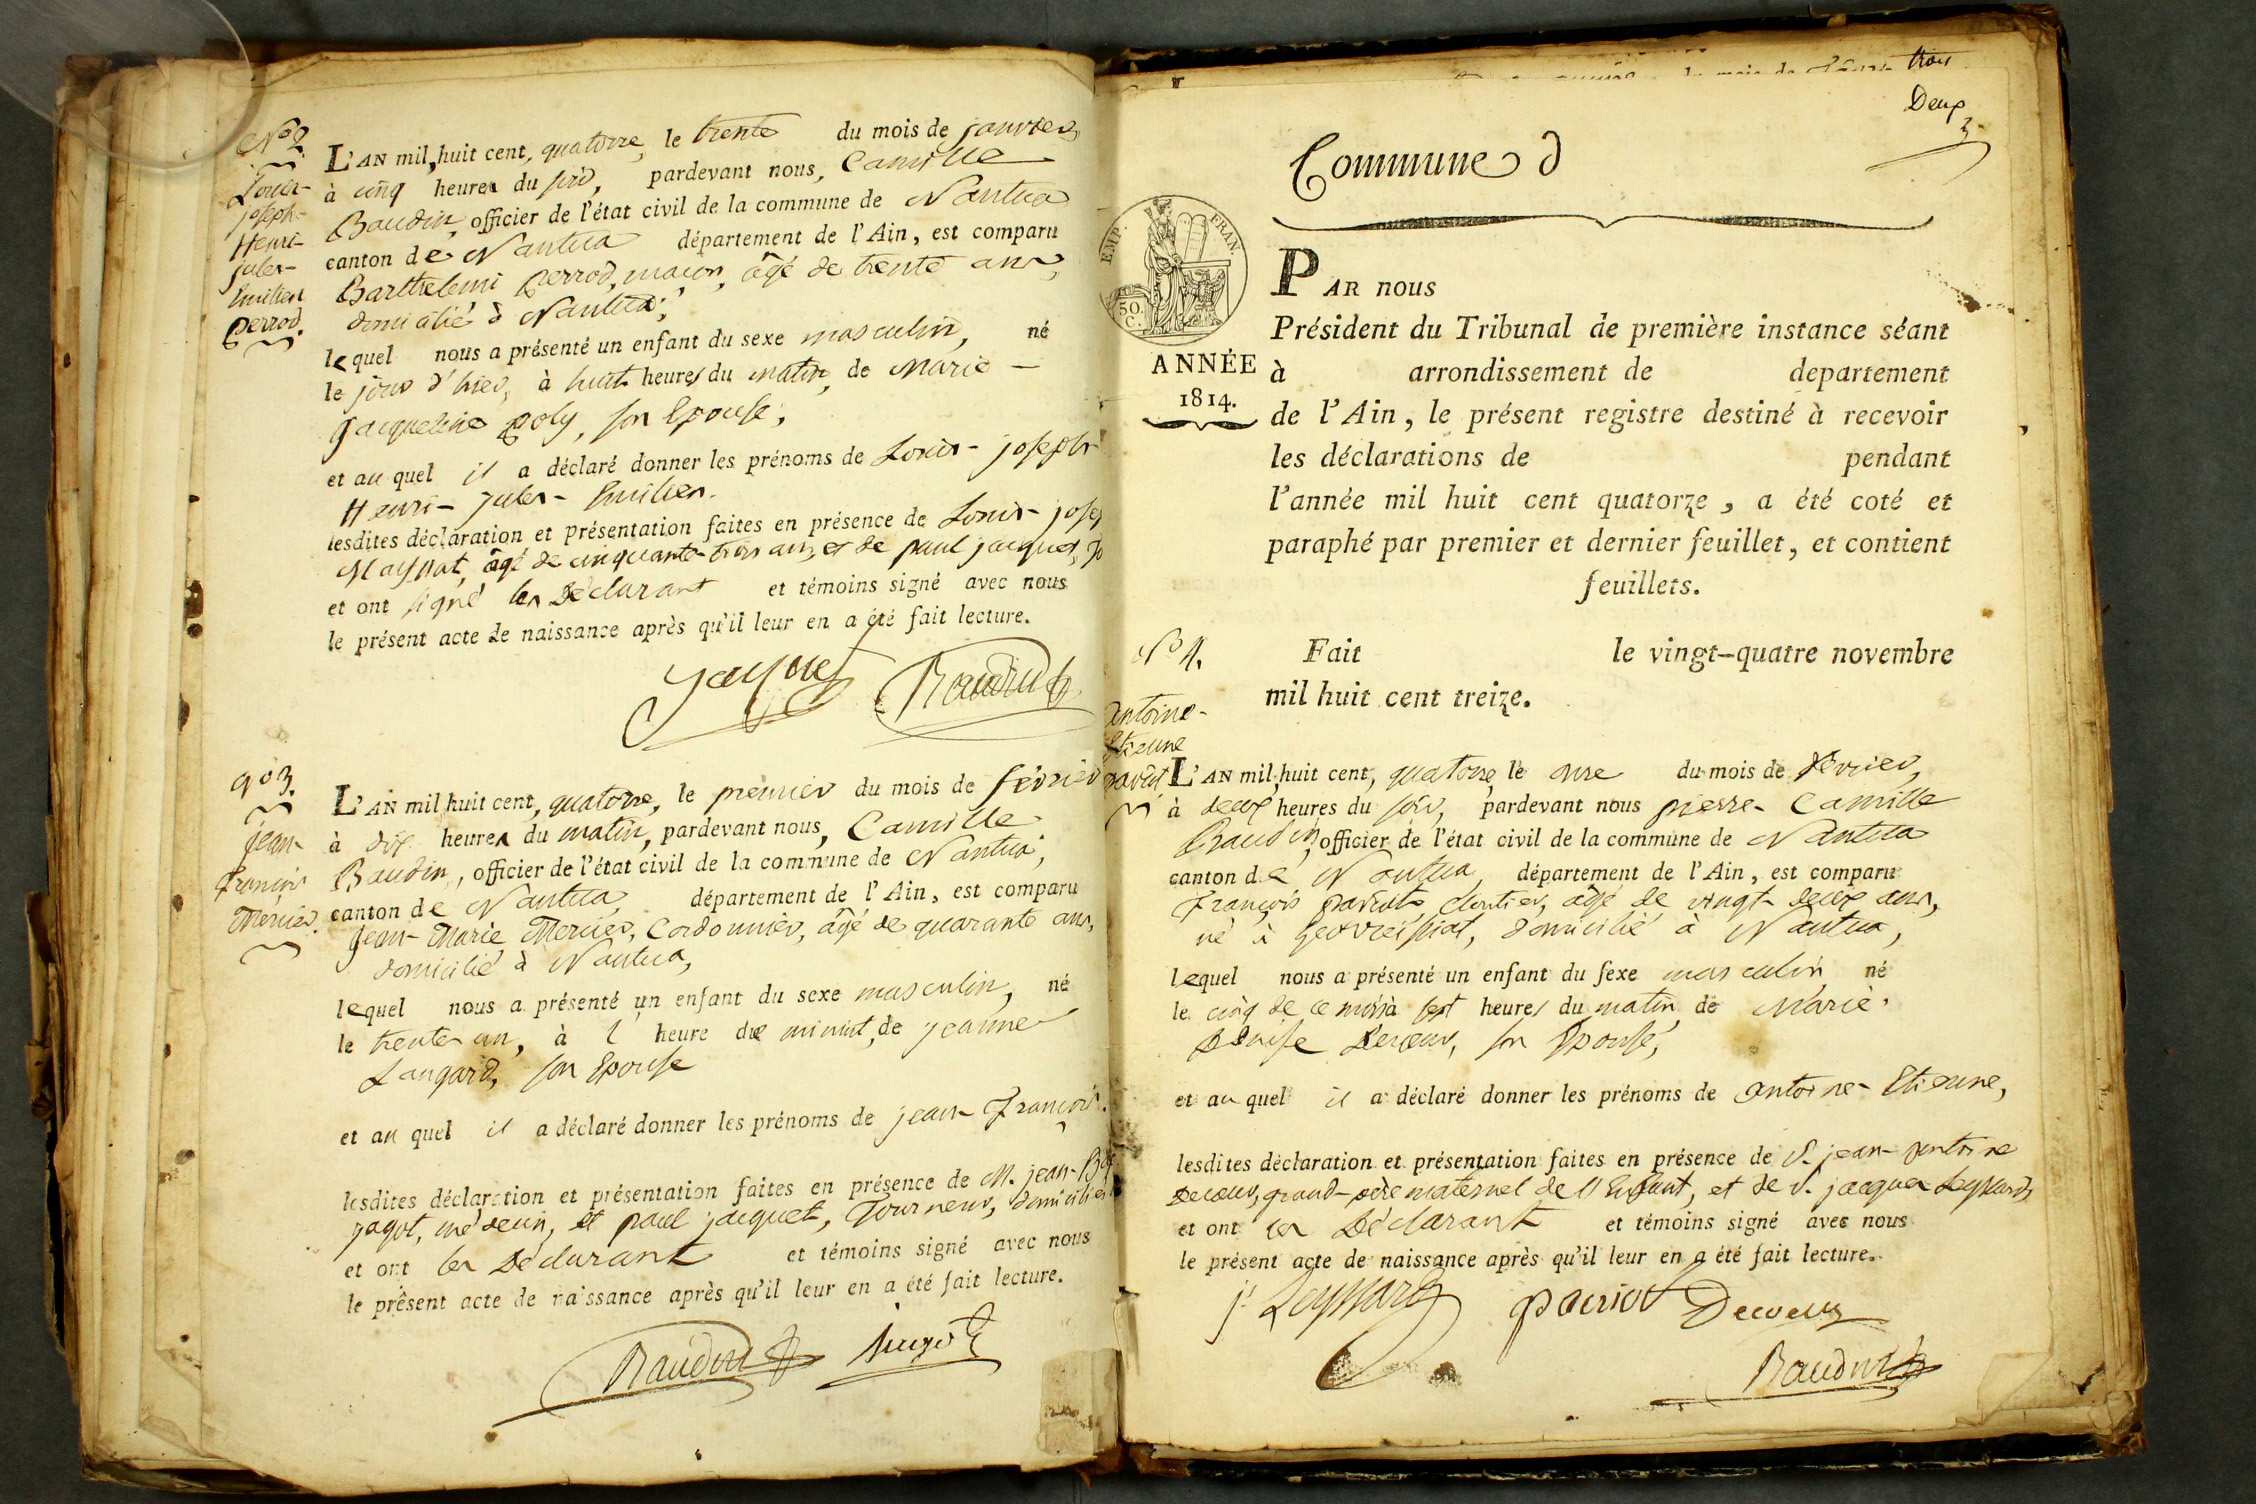 N.º 2
Louis-
joseph-
Henri-
jules-
Emilien
perrod.
L'AN mil huit cent, quatorze, le trente du mois de janvier,
à cinq heures du soir, pardevant nous, Camille
Baudin, officier de l'état civil de la commune de Nantua
canton de Nantua département de l'Ain, est comparu
Barthelemi perrod, maçon, âgé de trente ans,
domicilié à Nantua;
lequel nous a présenté un enfant du sexe masculin, né
le jour d'hier, à huit heures du matin, de Marie —
Jacqueline poly, son Epouse,
et au quel il a déclaré donner les prénoms de Louis-joseph
Henri-jules-Emilien.
lesdites déclaration et présentation faites en présence de Louis-josep
âgé de cinquante-trois ans, et de paul jacquet,
et ont signé les Déclarant et témoins signé avec nous
le présent acte de naissance après qu'il leur en a été fait lecture.
Jacquet Baudin
n.º 3.
jean-
françois
Mercier.
L'AN mil huit cent, quatorze, le premier du mois de février
à dix heures du matin, pardevant nous, Camille
Baudin, officier de l'état civil de la commune de Nantua,
canton de Nantua département de l'Ain, est comparu
Jean-Marie Mercier, Cordonnier, âgé de quarante ans,
domicilié à Nantua,
lequel nous a présenté un enfant du sexe masculin, né
le trente un, à l' heure de minuit, de jeanne
Langard, son Epouse
et au quel il a déclaré donner les prénoms de jean-françois.
lesdites déclaration et présentation faites en présence de M. jean-Bte
jagot, médecin, et paul jacquet, Tourneur, domiciliés
et ont les Déclarant et témoins signé avec nous
le présent acte de naissance après qu'il leur en a été fait lecture.
Baudin Jagot
trois
Deux
Commune d
EMP. FRAN.
50.
C.
ANNÉE
1814.
PAR nous
Président du Tribunal de première instance séant
à arrondissement de departement
de l'Ain, le présent registre destiné à recevoir
les déclarations de pendant
l'année mil huit cent quatorze, a été coté et
paraphé par premier et dernier feuillet, et contient
feuillets.
Fait le vingt-quatre novembre
mil huit cent treize.
N.º 4.
antoine-
Etienne
pariot
L'AN mil huit cent, quatorze, le onze du mois de février,
à deux heures du soir, pardevant nous pierre-Camille
Baudin, officier de l'état civil de la commune de Nantua
canton de Nantua, département de l'Ain, est comparu
François pariot cloutier, âgé de vingt-deux ans,
né à Geovreissiat, domicilié à Nantua,
lequel nous a présenté un enfant du sexe masculin, né
le cinq de ce mois à sept heures du matin de Marie-
Denise Decoeur, son Epouse,
et au quel il a déclaré donner les prénoms de antoine-Etienne,
lesdites déclaration et présentation faites en présence de S. jean-antoine
Decoeur, grand-père maternel de l'Enfant, et de S. jacques Leyssard,
et ont les Déclarant et témoins signé avec nous
le présent acte de naissance après qu'il leur en a été fait lecture.
j. Leyssard pariot Decoeur
Baudin